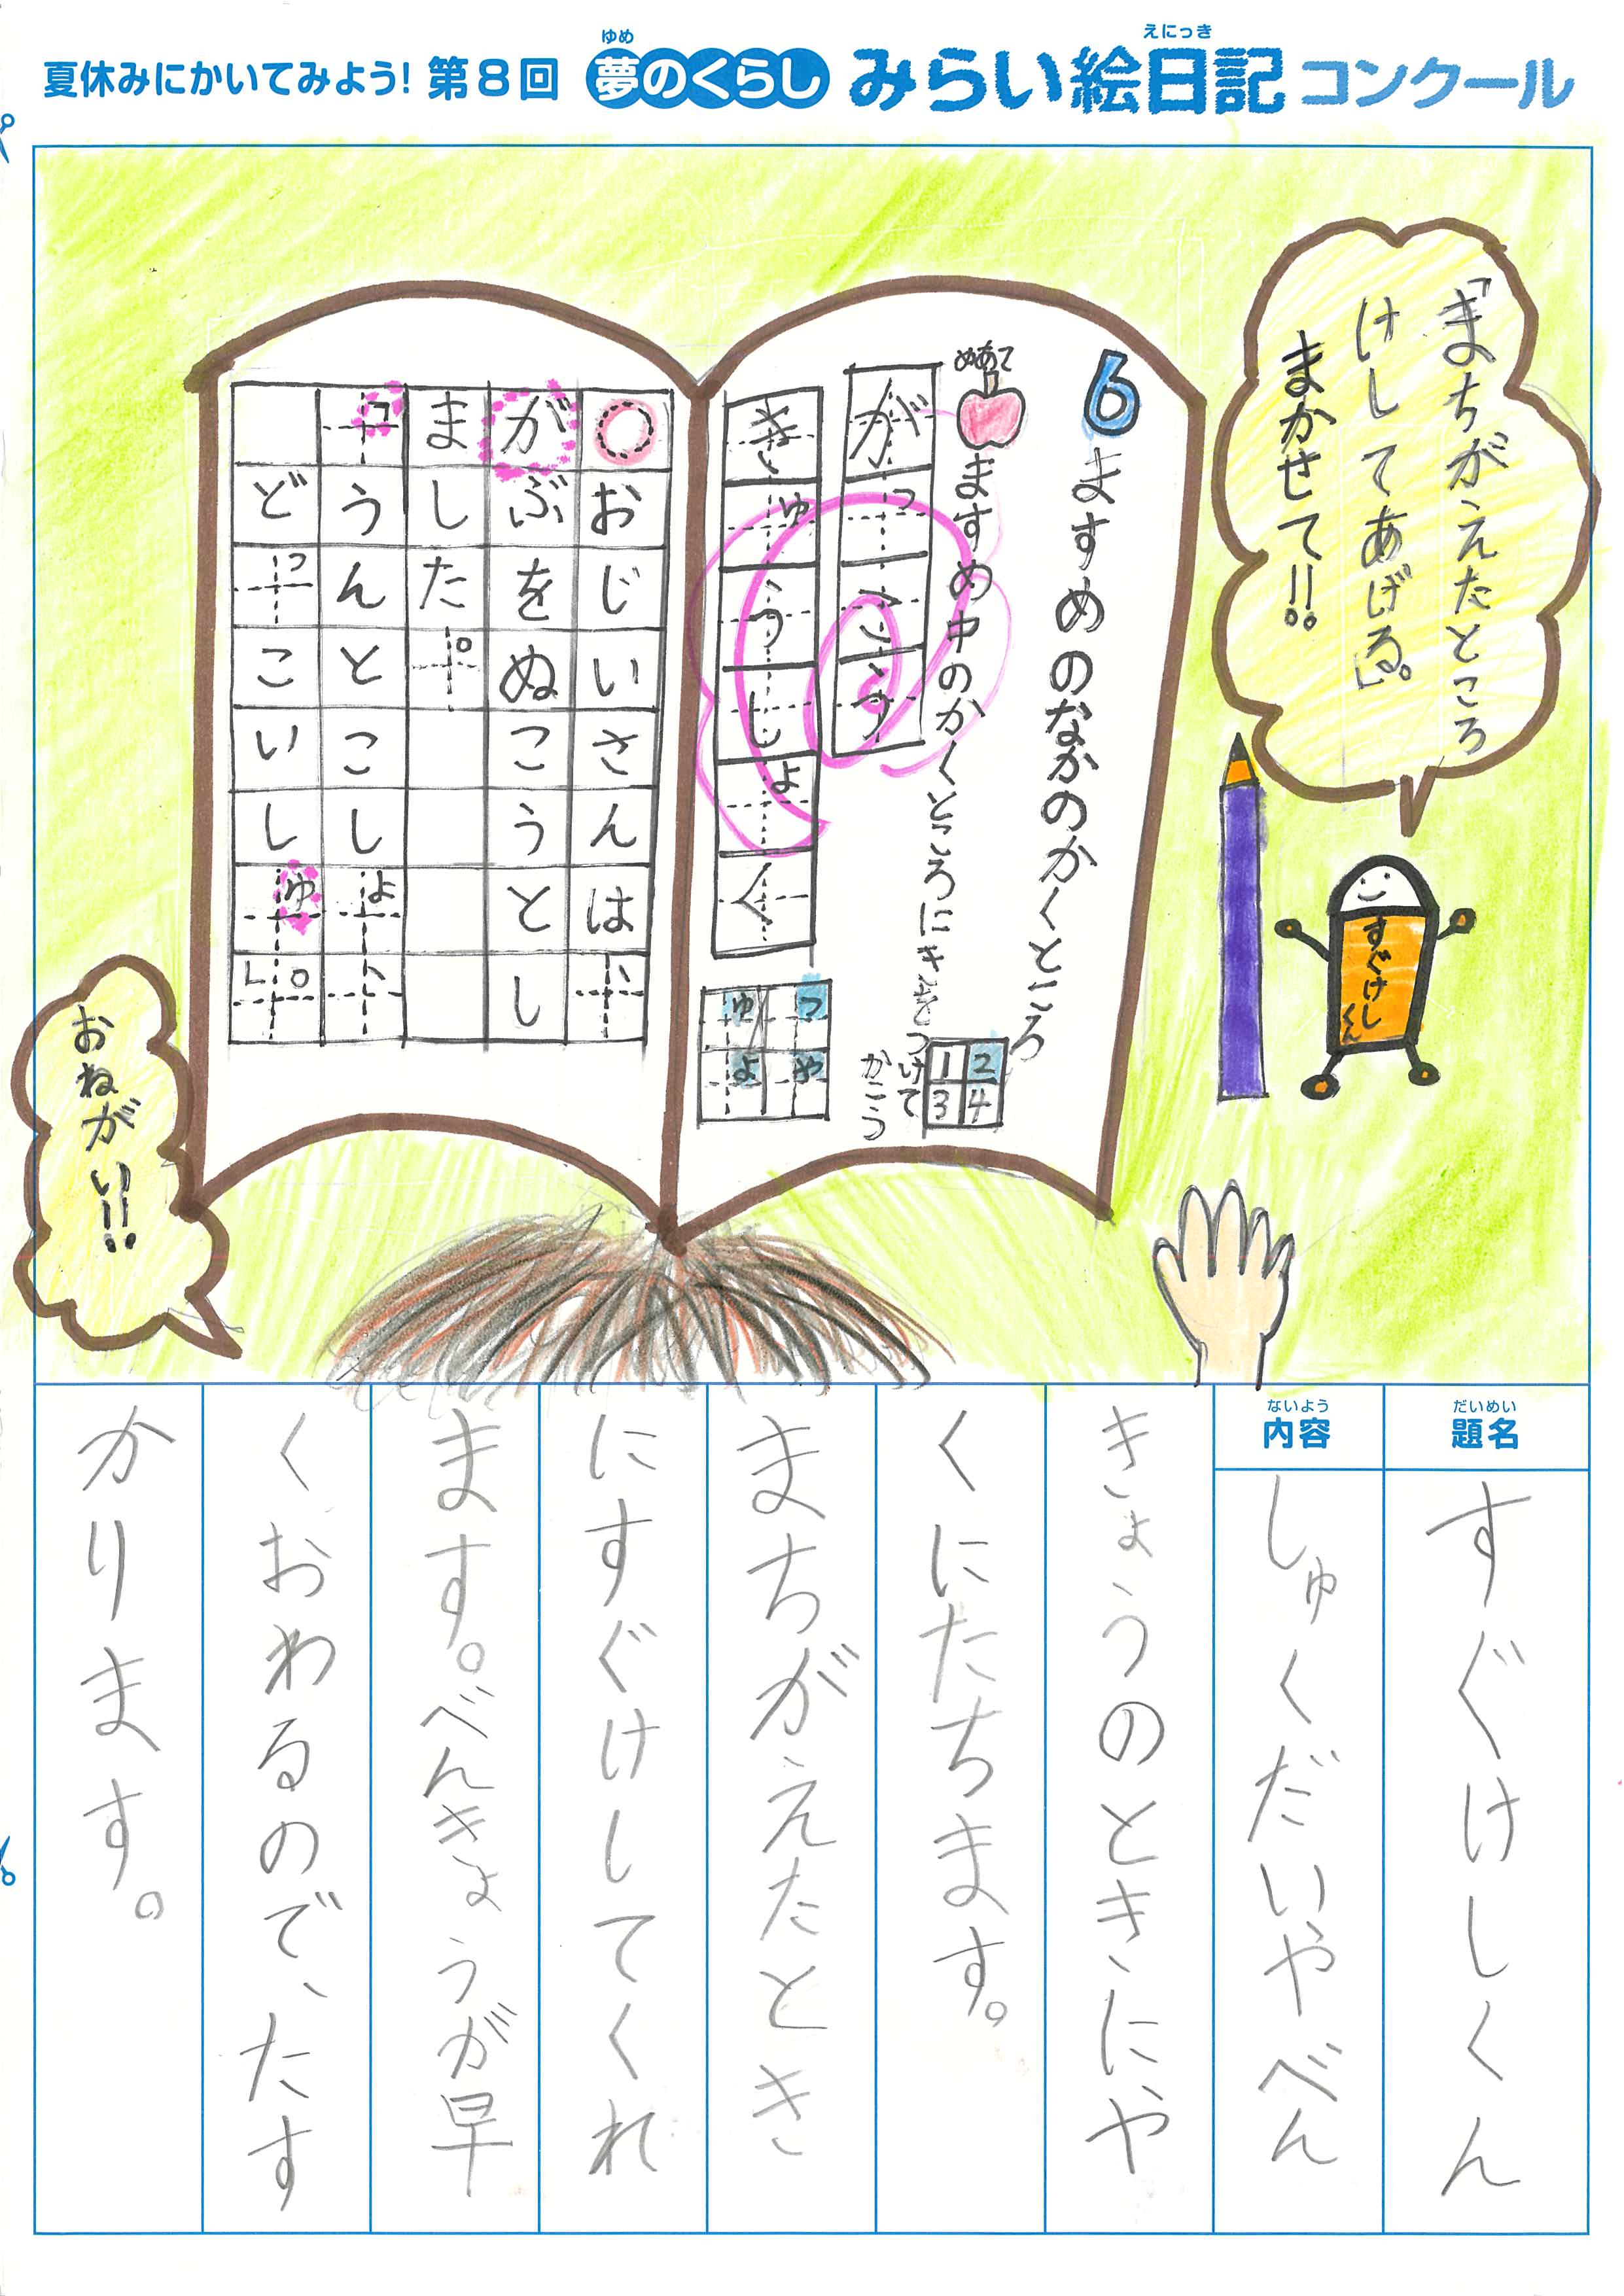 夏休みにかいてみよう! 第8回 夢のくらし みらい絵日記 コンクール
ゆめ
えにっき
「まちがえたところ
けしてあげる。」
まかせて!!
すぐけし
くん
6 ますめのなかのかくところ
1 2
3 4
めあて
ますめ中のかくところにきをつけて
かこう
がっこう
きゅうしょく
っ ゃ
ゅ ょ
おじいさんは、
がぶをぬこうとし
ました。
「うんとこしょ、
どっこいしゅ。」
おねがい!!
だいめい
題名
すぐけしくん
ないよう
内容
しゅくだいやべん
きょうのときにや
くにたちます。
まちがえたとき
にすぐけしてくれ
ます。べんきょうが早
くおわるので、たす
かります。